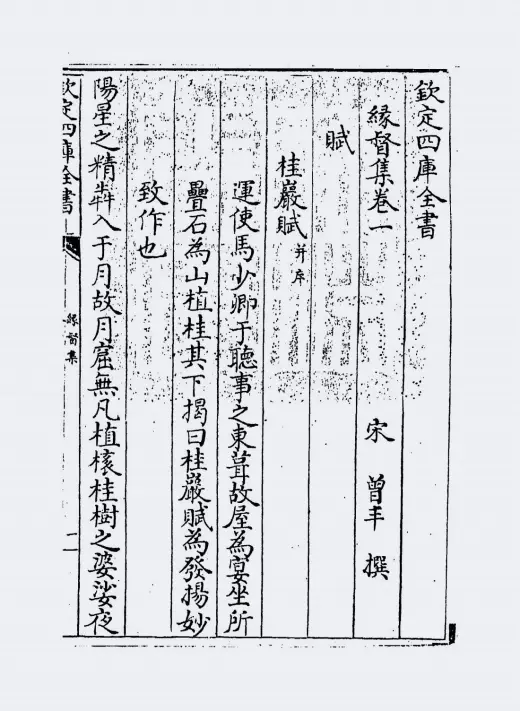 欽定四庫全書
緣督集卷一
宋 曾丰 撰
賦
桂巖賦 并序
運使馬少卿于聽事之東葺故屋為宴坐所
疊石為山植桂其下揭曰桂巖賦為發揚妙
致作也
陽星之精犇入于月故月窟無凡植檪桂樹之婆娑夜
欽定四庫全書
緣督集